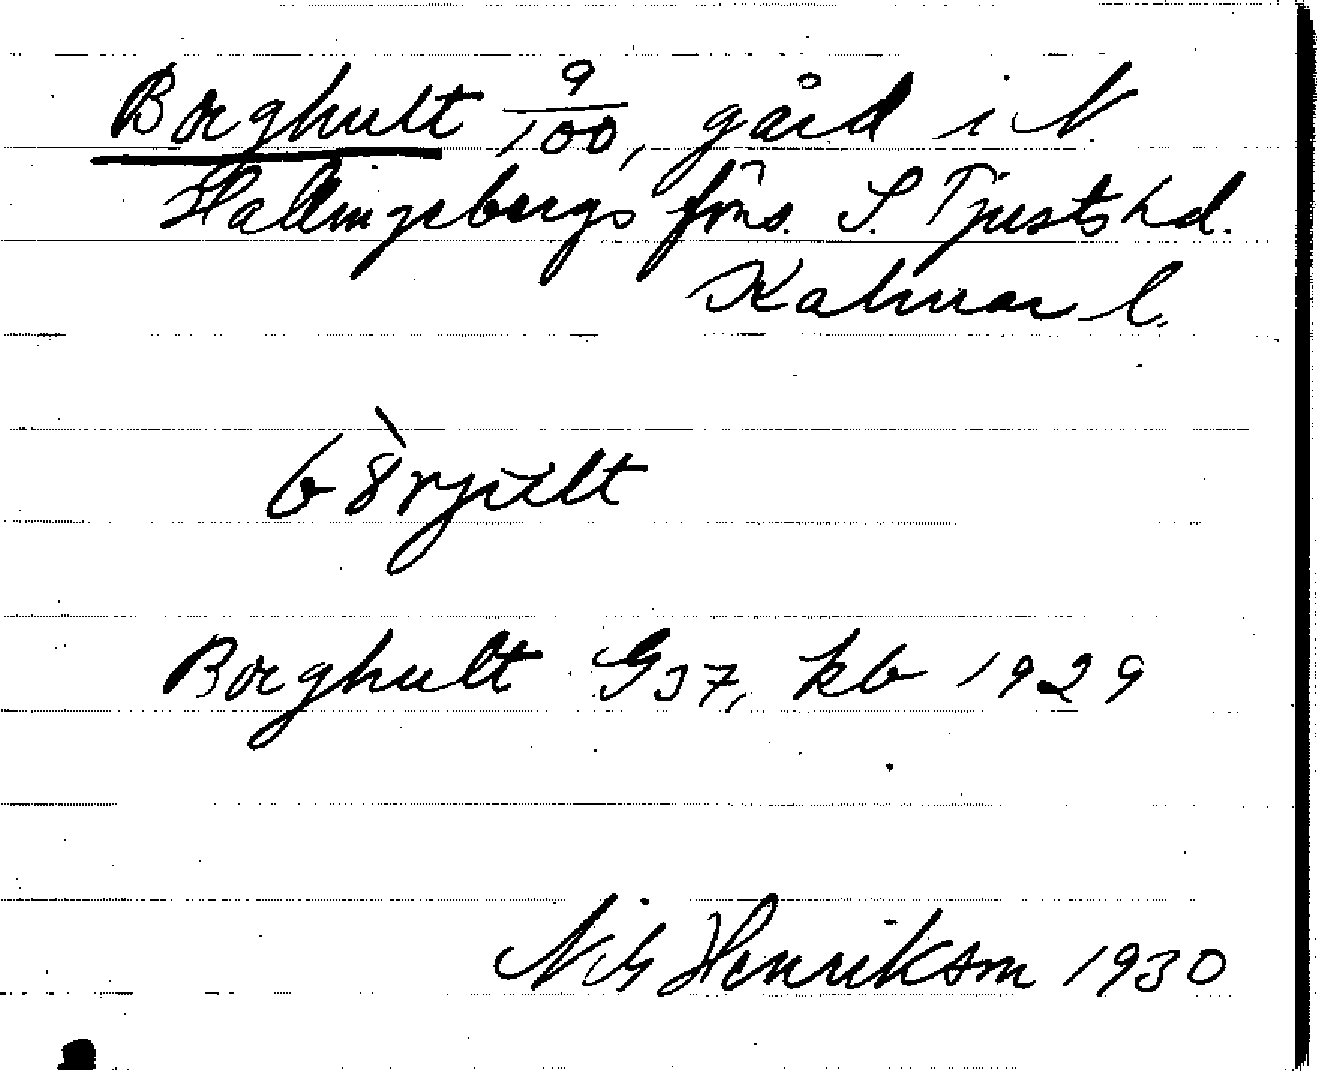 Borghult 9/100, gård i N.
Hallingebergs förs. S. Tjusts hd.
Kalmar l.
Borghult GJ7, kb 1929
Nils Henrikson 1930